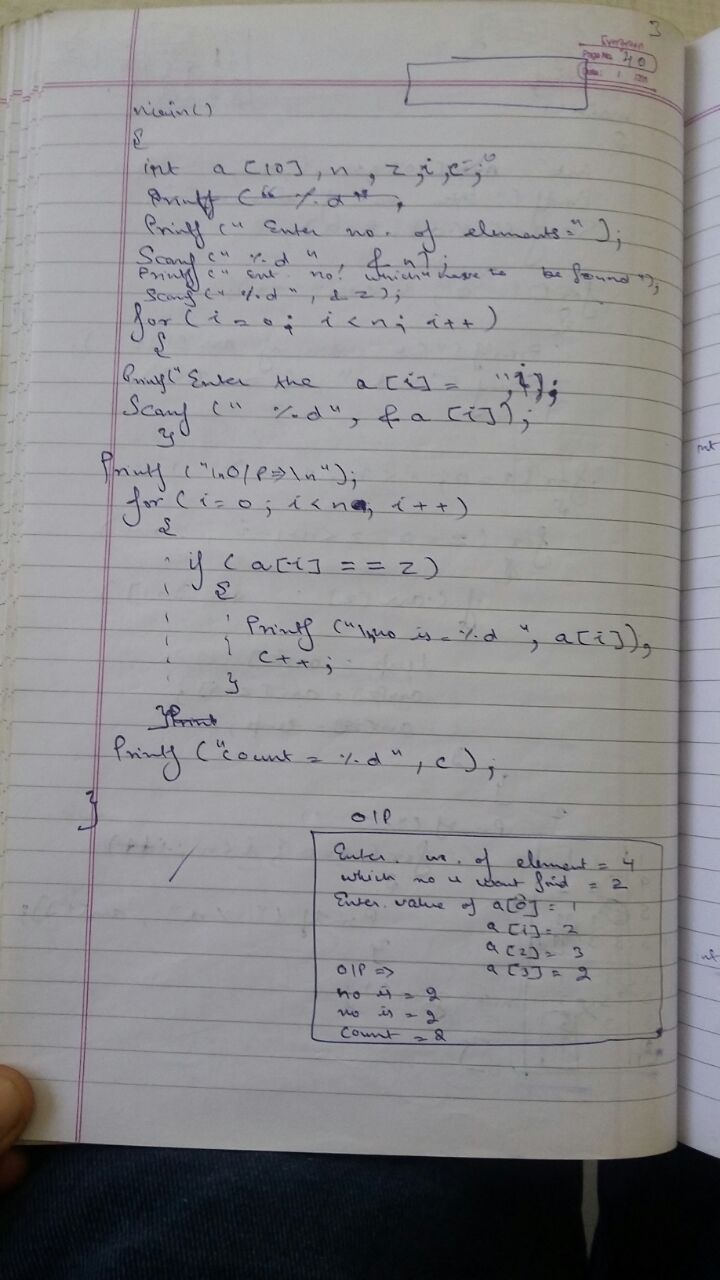 3
Evergreen
Page No. 40
Date: / /20
main()
{
int a[10], n, z, i, c=0;
Printf ("%d",
Printf (" Enter no. of elements=");
Scanf (" %d ", &n);
Printf (" Ent. no. which have to be found");
Scanf (" %d", &z);
for (i=0; i<n; i++)
{
Printf("Enter the a[i] = ",i);
Scanf (" %d", &a[i]);
}
Printf ("\nO/P=>\n");
for (i=0; i<n; i++)
{
if (a[i] == z)
{
Printf ("\nno is=%d ", a[i]);
c++;
}
}Print
Printf ("count = %d", c);
}
O/P
Enter no. of element = 4
which no u want find = 2
Enter value of a[0] = 1
a[1]= 2
a[2]= 3
O/P => a[3] = 2
no is = 2
no is = 2
count = 2